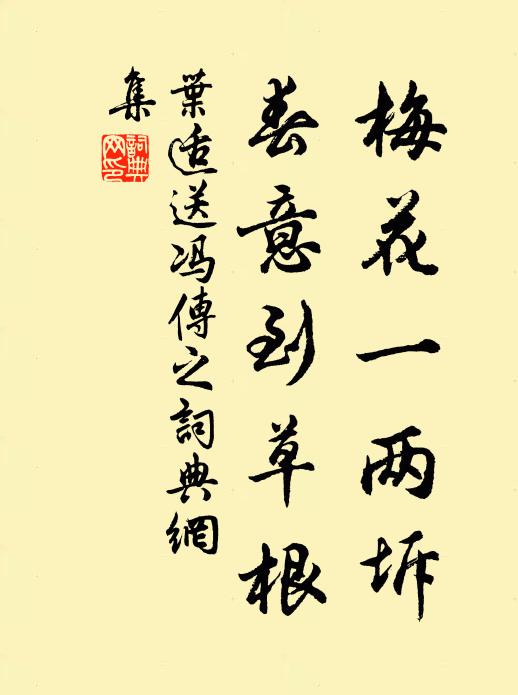 梅花一两坼
春意到草根
葉适送冯傅之詞典網
集
詞典网印